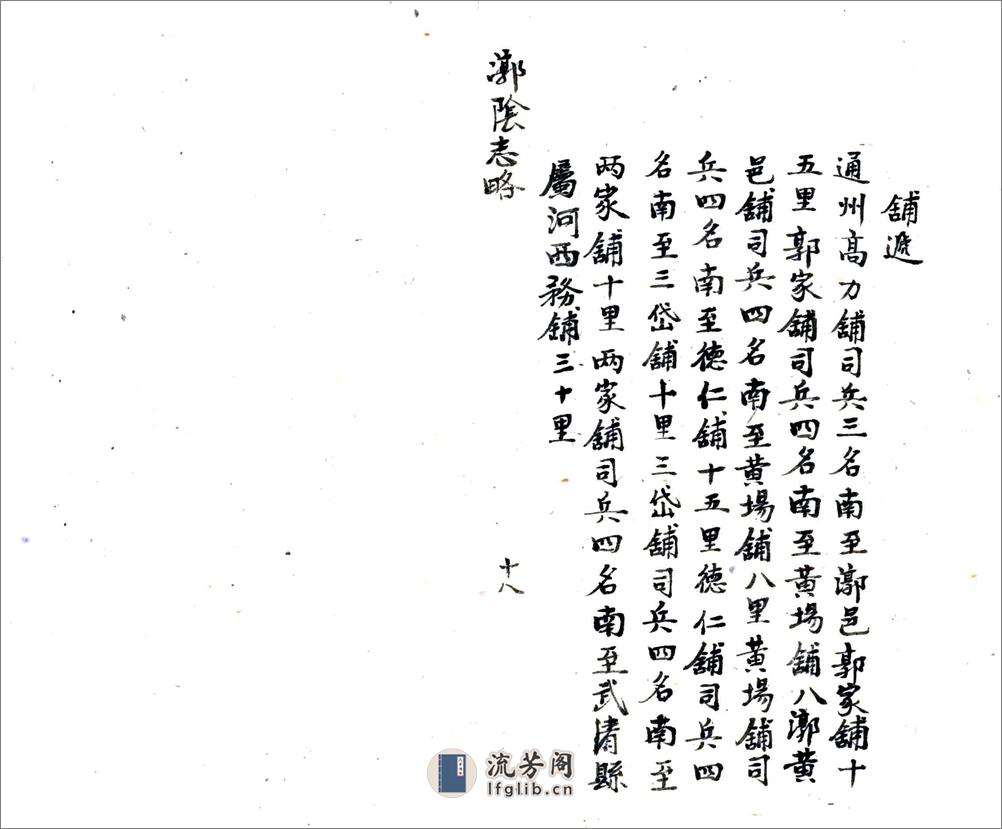 舖遞
通州高力舖司兵三名南至漷邑郭家舖十
五里郭家舖司兵四名南至黄場舖八漷黄
邑舖司兵四名南至黄場舖八里黄場舖司
兵四名南至德仁舖十五里德仁舖司兵四
名南至三岱舖十里三岱舖司兵四名南至
两家舖十里两家舖司兵四名南至武清縣
屬河西務舖三十里
漷陰志略
十八
流芳阁
lfglib.cn